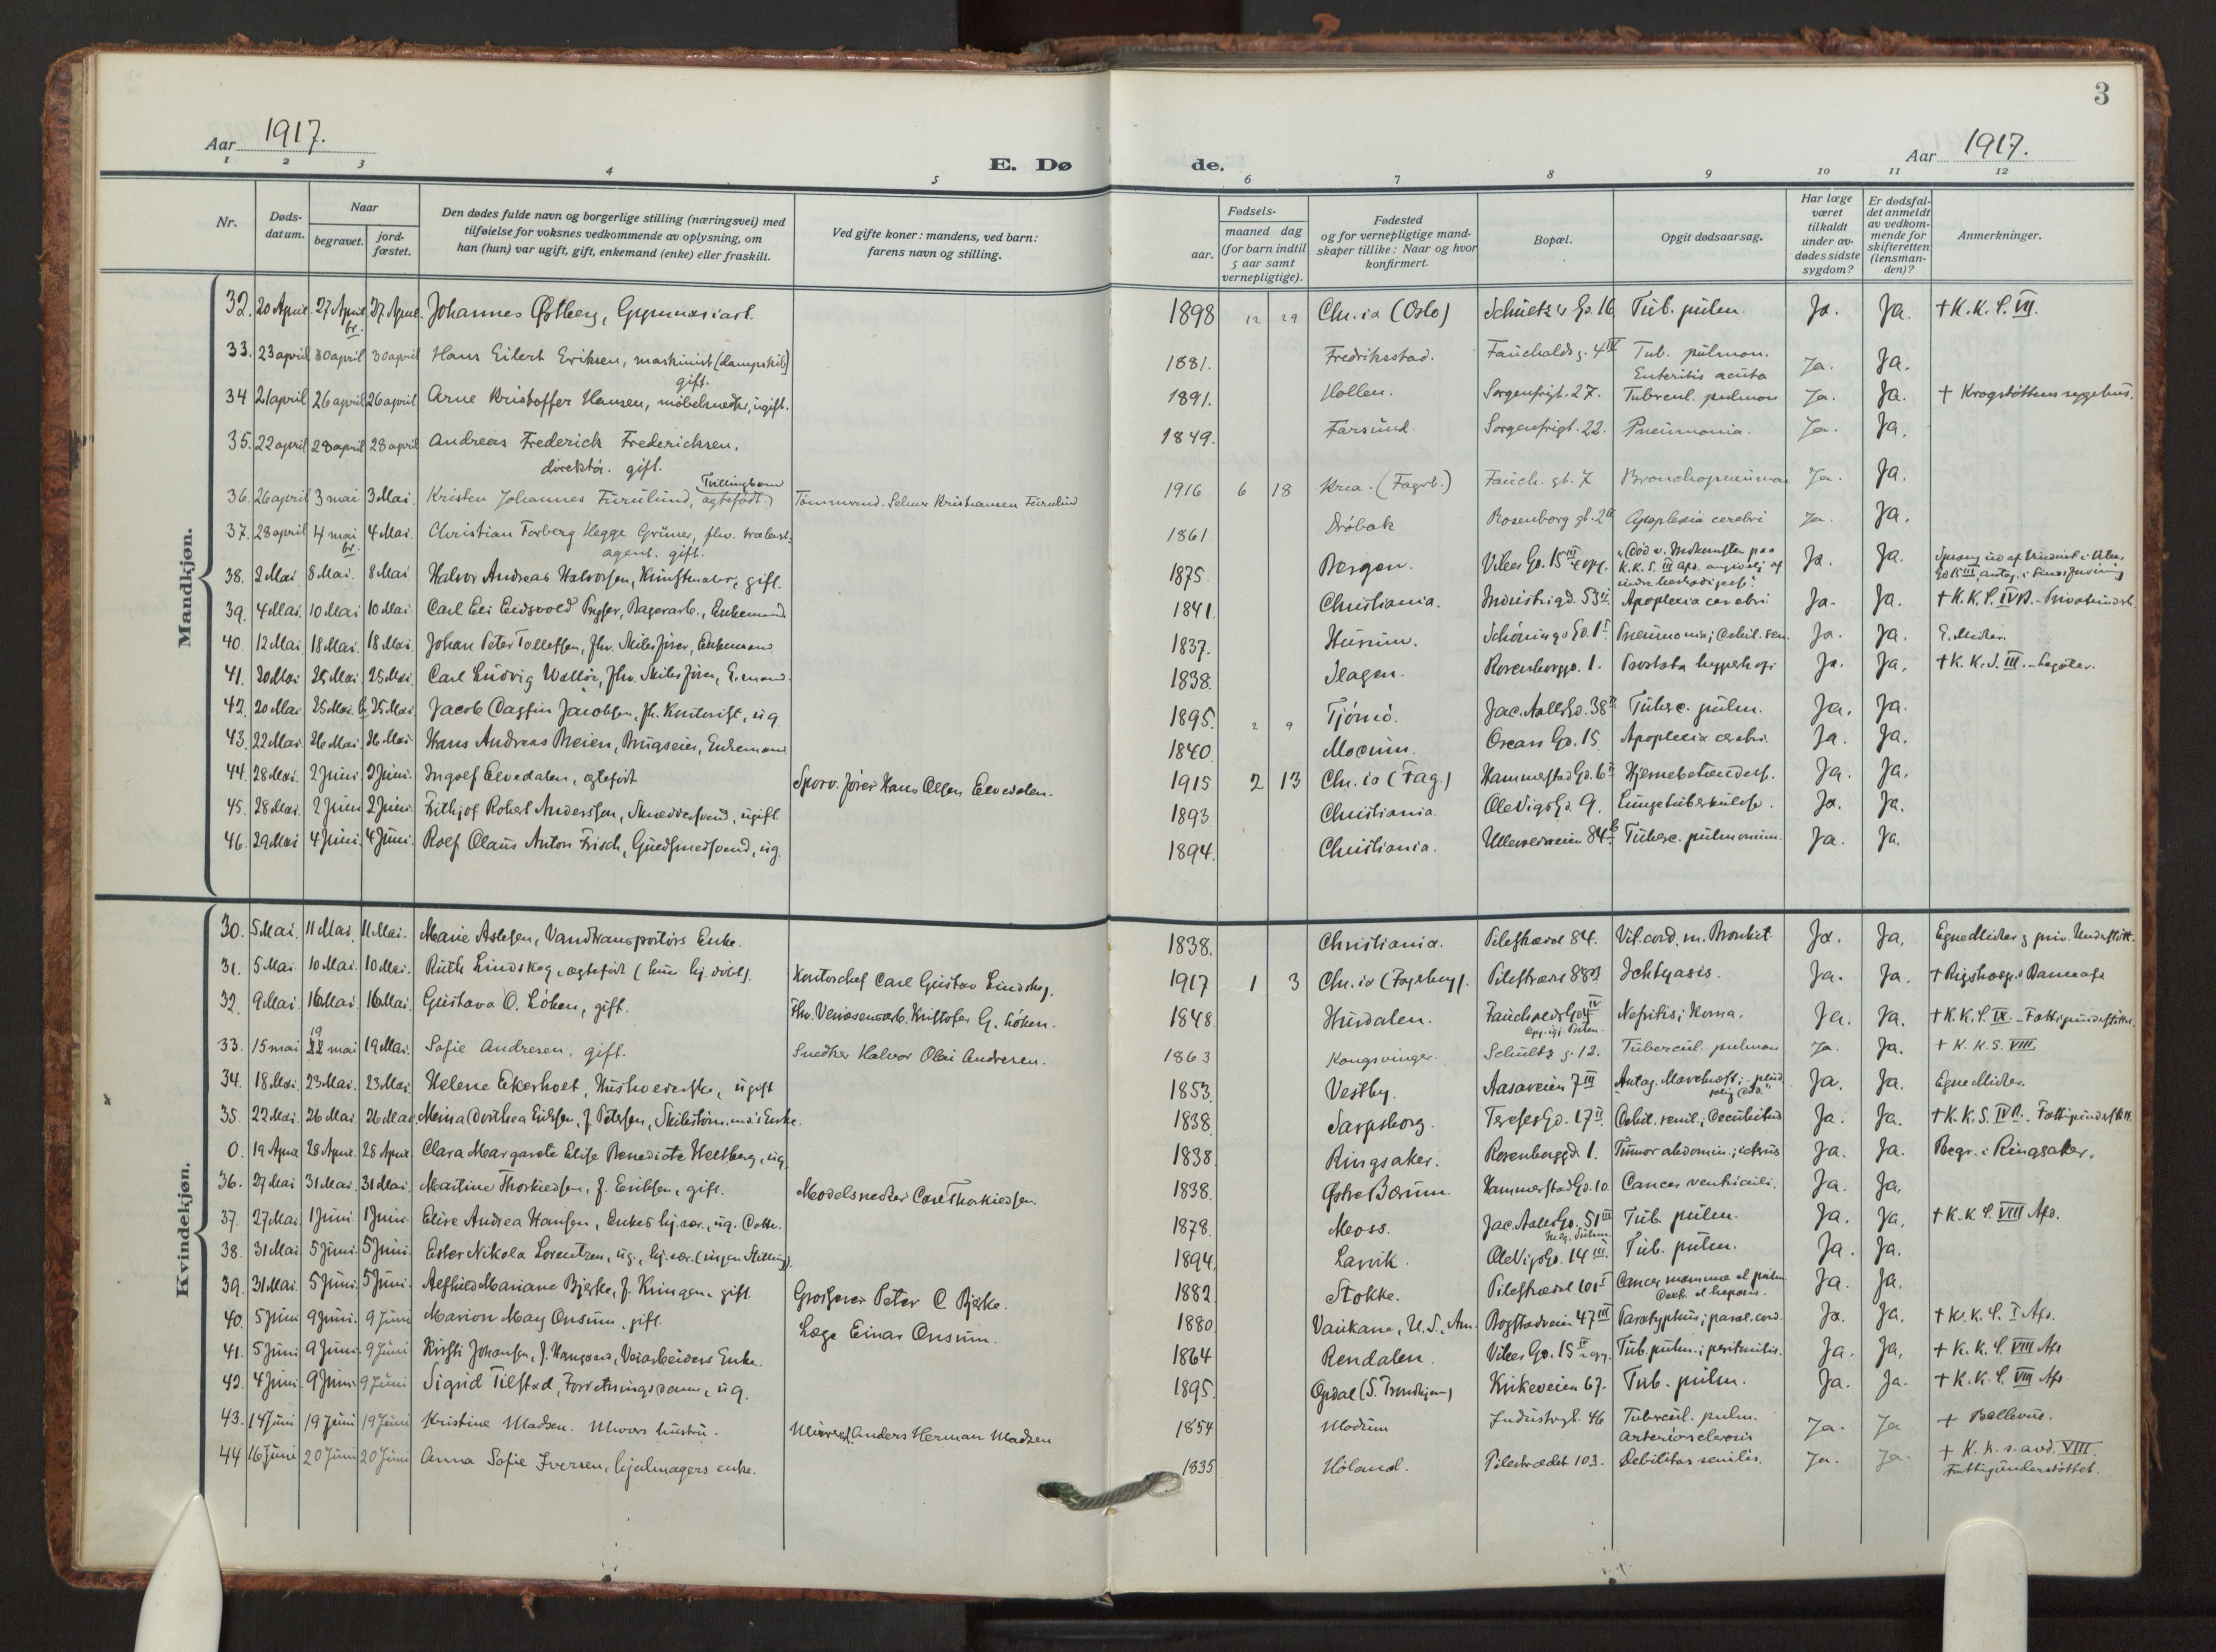 3
Aar 1917.
E. Døde.
Aar 1917.
1 2 3 4 5 6 7 8 9 10 11 12
Nr.
Dødsdatum.
Naar
begravet.
jordfæstet.
Den dødes fulde navn og borgerlige stilling (næringsvei) med
tilføielse for voksnes vedkommende av oplysning, om
han (hun) var ugift, gift, enkemand (enke) eller fraskilt.
Ved gifte koner: mandens, ved barn:
farens navn og stilling.
Fødsels-
aar.
maaned dag
(for barn indtil
5 aar samt
vernepligtige).
Fødested
og for vernepligtige mand-
skaper tillike: Naar og hvor
konfirmert.
Bopæl.
Opgit dødsaarsag.
Har læge
været
tilkaldt
under av-
dødes sidste
sygdom?
Er dødsfal-
det anmeldt
av vedkom-
mende for
skifteretten
(lensman-
den)?
Anmerkninger.
Mandkjøn.
32. 20 April 27 April br. 27 April Johannes Østberg, Gymnasiast. 1898 12 29 Chr.ia (Oslo) Schultz's Gd. 16 Tub. pulm. Ja. Ja. + K. K. S. VII.
33. 23 april 30 april 30 april Hans Eilert Eriksen, maskinist (dampskib) gift. 1881. Fredriksstad. Fauchalds g. 4 IV Tub. pulmon. Enteritis acuta Ja. Ja.
34 21 april 26 april 26 april Arne Kristoffer Hansen, møbelsnedker, ugift. 1891. Hollen. Sorgenfrigt. 27. Tubercul. pulmon Ja. Ja. + Krogstøttens sygehus.
35. 22 april 28 april 28 april Andreas Frederich Frederichsen, direktør. gift. 1849. Farsund. Sorgenfrigt. 22. Pneumonia. Ja. Ja.
36. 26 april 3 mai 3 Mai. Kristen Johannes Furulund, (Tvillingbarn ægtefødt.) Tømmermd. Selmer Kristiansen Furulund 1916 6 18 Kria. (Fagerb.) Fauch. gt. 7 Bronchopneumonia Ja. Ja.
37. 28 april 4 mai br. 4 Mai. Christian Torberg Hegge Grüner, fhv. trælast-agent. gift. 1861 Drøbak Rosenborg gt. 2 II Apoplexia cerebri Ja. Ja.
38. 2 Mai 8 Mai. 8 Mai. Halvor Andreas Halvorsen, Kunstmaler, gift. 1875. Bergen. Vibes Gd. 15 III "Død v. Indkomsten paa K. K. S. III afd. angivelig af indre beskadigelse". Ja. Ja. Sprang ud af Vinduet i Vibes Gd 15 III, antag. i Sindsforvirring
39. 4 Mai. 10 Mai 10 Mai. Carl Eidsvold Enkemand 1841. Christiania. Industrigd. 53 II. Apoplexia cerebri Ja. Ja. + K. K. S. IV B. - Privatunderst.
40. 12 Mai 18 Mai. 18 Mai. Johan Peter Tollefsen, fhv. Enkemand 1837. Hurum. Schønings Gd. 1 I Pneumonia; Debil. sen. Ja. Ja. E. Midler.
41. 20 Mai 25 Mai 25 Mai. Carl Ludvig E.mand. 1838. Slagen. Rosenborggd. 1. Prostata hypertrofi Ja. Ja. + K. K. S. III. - Legater.
42. 20 Mai. 25 Mai. b. 25 Mai Jacob Dagfin Jacobsen, fh. Kontorist, ug. 1895. 2 9 Tjømø. Jac. Aalls Gd. 38 Tuberc. pulm. Ja. Ja.
43. 22 Mai. 26 Mai. 26 Mai. Hans Andreas Breien, Brugseier, Enkemand 1840. Modum. Oscars Gd. 15 Apoplexia cerebri. Ja. Ja.
44. 28 Mai. 2 Juni. 2 Juni. Ingolf Elvedalen, ægtefødt Sporv. fører Hans Olsen Elvedalen. 1915 2 13 Chr.ia (Fag.) Hammerstad Gd. 6 Hjernebetændelse. Ja. Ja.
45. 28 Mai. 2 Juni 2 Juni. Frithjof Robert Anderssen, Snedkersvend, ugift 1893. Christiania. Ole Vigs Gd. 9. Lungetuberkulose. Ja. Ja.
46. 29 Mai 4 Juni. 4 Juni. Rolf Olaus Anton Frisch, Guldsmedsvend, ug. 1894. Christiania. Ullevoldsveien 84 b Tuberc. pulmonum. Ja. Ja.
Kvindekjøn.
30. 5 Mai. 11 Mai. 11 Mai. Marie Aslesen, Vandtransportørs Enke. 1838. Christiania. Pilestrædet 84. Vit. cord. m. Bronkit. Ja. Ja. Egne Midler og priv. Understøtt.
31. 5 Mai. 10 Mai. 10 Mai. Ruth Lindskog, ægtefødt (kun hj.døbt). Kontorchef Carl Gustav Lindskog. 1917 1 3 Chr.ia (Fagerborg). Pilestrædet 88 Ichtyosis. Ja. Ja. + Rigshosp.s Barneafd.
32. 9 Mai. 16 Mai. 16 Mai. Gustava O. Løken, gift. Fhv. Kristofer G. Løken. 1848. Hurdalen. Fauchalds Gd 4 IV Nefritis; Koma. Ja. Ja. + K. K. S. IX. - Fattigunderstøttet.
33. 15 mai 19 22 mai 19 Mai. Sofie Andresen, gift. Snedker Halvor Olai Andresen. 1863 Kongsvinger. Schultz g. 12. Tubercul. pulmon Ja. Ja. + K. K. S. VIII
34. 18 Mai. 23 Mai. 23 Mai. Helene Ekerholt, Husholderske, ugift 1853. Vestby. Aasaveien 7 III Antag. - pludselig død." Ja. Ja. Egne Midler.
35. 22 Mai. 26 Mai. 26 Mai. Meina Dorthea Eilssen, f. Petersen, Enke. 1838. Sarpsborg. Tereses Gd. 17 II. Debil. senil.; Decubitus Ja. Ja. + K. K. S. IV B. Fattigunderstøtt.
0. 19 April 28 April. 28 April Clara Margarete Elise Benedicte Heltberg, ug. 1838. Ringsaker. Rosenborggd. 1. Tumor abdomin.; icterus Ja. Ja. Begr. i Ringsaker.
36. 27 Mai 31 Mai. 31 Mai. Martine Thorkildsen, f. Eriksen, gift. Modelsnedker Carl Thorkildsen. 1838. Østre Bærum. Hammerstad Gd. 10. Cancer ventriculi. Ja. Ja.
37. 27 Mai. 1 Juni. 1 Juni. Elise Andrea Hansen, Enkes hj.vær., ug. Datter. 1878. Moss. Jac. Aalls Gd. 51 III Tub. pulm. Ja. Ja. + K. K. S. VIII Afd.
38. 31 Mai 5 Juni. 5 Juni. Ester Nikola Lorentzen, ug., hj.vær. (ingen Stilling). 1894. Larvik. Ole Vigs Gd. 14 III. Tub. pulm. Ja. Ja.
39. 31 Mai. 5 Juni. 5 Juni. Alfhild Mariane Bjerke, f. Kringen. gift. Grosserer Peter C Bjerke. 1882. Stokke. Pilestrædet 101 I Cancer mamma et pulm. dext. et hepatis. Ja. Ja.
40. 5 Juni 9 Juni. 9 Juni Marion May Onsum, gift. Læge Einar Onsum. 1880. Vaukane, U. S., Am. Bogstadveien 47 III Paratyphus; paral. cord. Ja. Ja. + K. K. S. I Afd.
41. 5 Juni 9 Juni. 9 Juni Kirsti Johansen, Veiarbeiders Enke. 1864 Rendalen. Vibes Gd. 15 II Tub. pulm.; peritonitis. Ja. Ja. + K. K. S. VIII Afd
42. 4 Juni. 9 Juni. 9 Juni Sigrid Tilstad, Forretningsdame, ug. 1895. Opdal (S. Trondhjem) Kirkeveien 67. Tub. pulm. Ja. Ja. + K. K. S. VIII Afd.
43. 14 Juni 19 Juni 19 Juni Kristine Madsen. Murers hustru. Murer Anders Herman Madsen 1854 Modum Industrigt. 46 Tubercul. pulm. arteriosclerosis Ja. Ja + Bellevue.
44 16 Juni 20 Juni 20 Juni Anna Sofie Iversen, hjulmagers enke. 1835 Høland. Pilestrædet 103. Debilitas senilis. Ja. Ja. + K. K. s. avd. VIII. Fattigunderstøttet.